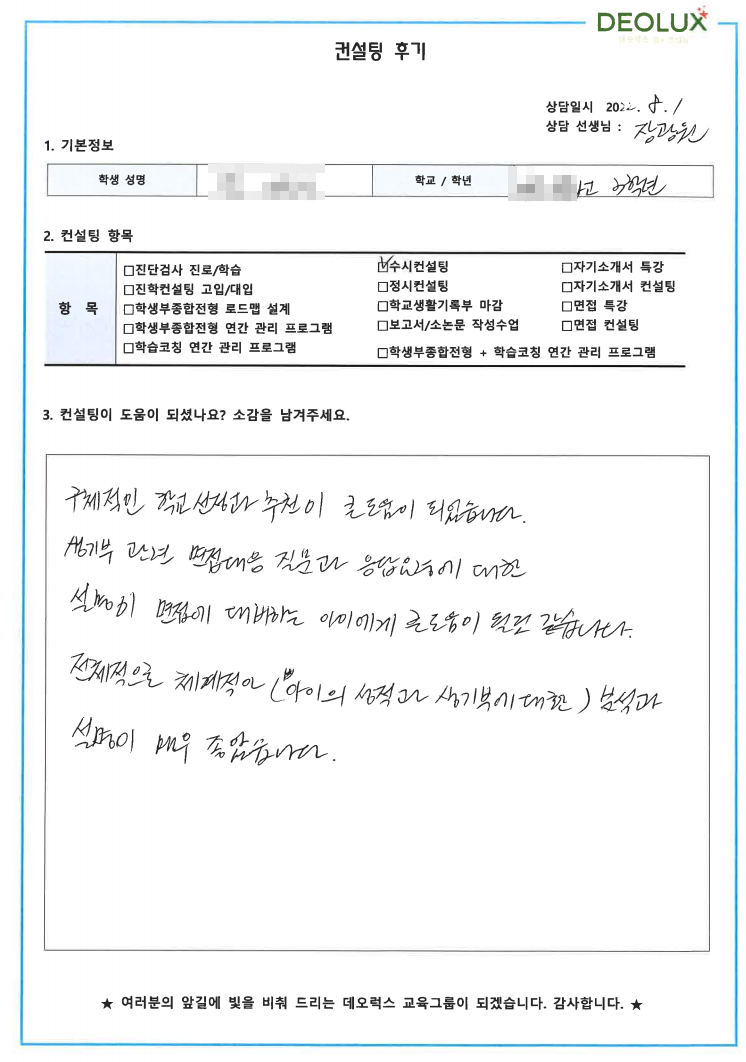 DEOLUX
컨설팅 후기
상담일시 2022. 8. 1
상담 선생님 : 장광원
1. 기본정보
학생 성명
학교 / 학년 고 3학년
2. 컨설팅 항목
항 목
□진단검사 진로/학습
□진학컨설팅 고입/대입
□학생부종합전형 로드맵 설계
□학생부종합전형 연간 관리 프로그램
□학습코칭 연간 관리 프로그램
☑수시컨설팅
□정시컨설팅
□학교생활기록부 마감
□보고서/소논문 작성수업
□학생부종합전형 + 학습코칭 연간 관리 프로그램
□자기소개서 특강
□자기소개서 컨설팅
□면접 특강
□면접 컨설팅
3. 컨설팅이 도움이 되셨나요? 소감을 남겨주세요.
구체적인 학교선정과 추천이 큰도움이 되었습니다.
생기부 관련 면접대응 질문과 응답요령에 대한
설명이 면접에 대비하는 아이에게 큰도움이 될것 같습니다.
전체적으로 체계적인 (아이의 성적과 생기부에 대한) 분석과
설명이 매우 좋았습니다.
★ 여러분의 앞길에 빛을 비춰 드리는 데오럭스 교육그룹이 되겠습니다. 감사합니다. ★